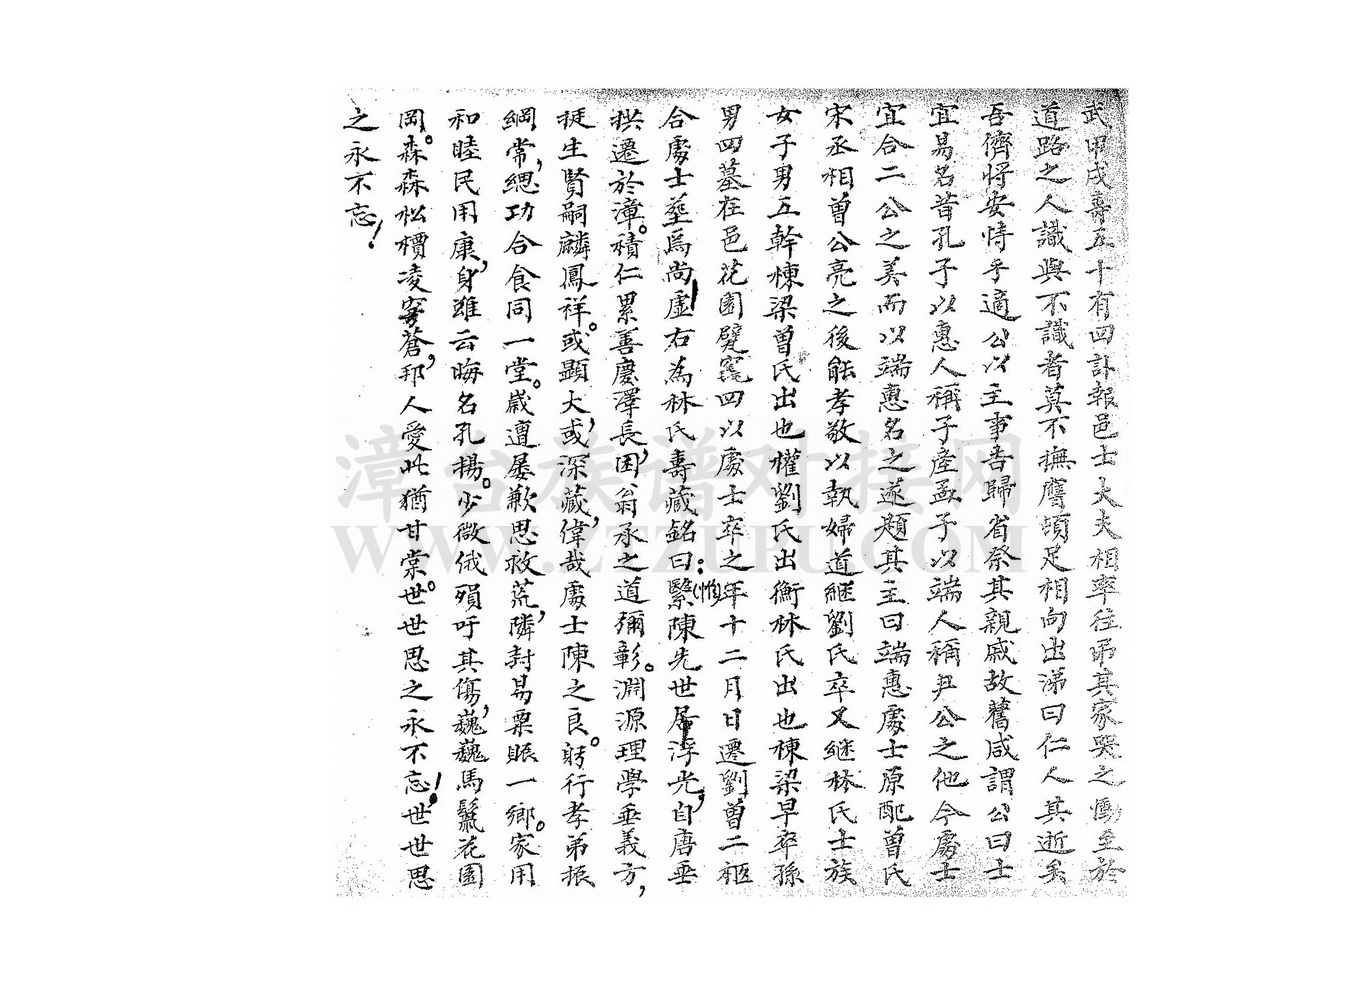 武甲戌壽五十有四訃報邑士大夫相率往吊其家哭之慟至於
道路之人識與不識者莫不撫膺頓足相向出涕曰仁人其逝矣
吾儕將安恃乎適公以主事告歸省祭其親戚故舊咸謂公曰士
宜易名昔孔子以惠人稱子產孟子以端人稱尹公之他今處士
宜合二公之美而以端惠名之遂題其主曰端惠處士原配曾氏
宋丞相曾公亮之後能孝敬以執婦道繼劉氏卒又繼林氏士族
女子男五幹棟梁曾氏出也權劉氏出衡林氏出也棟梁早卒孫
男四墓在邑花園甓窀四以處士卒之年十二月日遷劉曾二柩
合處士塟焉尚虛右為林氏壽藏銘曰：繄(惟)陳先世居浮光，自唐垂
拱遷於漳。積仁累善慶澤長，困翁承之道彌彰。淵源理學垂義方，
挺生賢嗣麟鳳祥。或顯大，或深藏，偉哉處士陳之良。躬行孝弟振
綱常，緦功合食同一堂。歲遭屡歉思救荒，隣封易粟賑一鄉。家用
和睦民用康，身雖云晦名孔揚。少微俄殞吁其傷，巍巍馬鬣花園
岡。森森松檟凌穹蒼，邦人愛此猶甘棠。世世思之永不忘！世世思
之永不忘！
漳台族谱对接网
WWW.ZTZUPU.COM